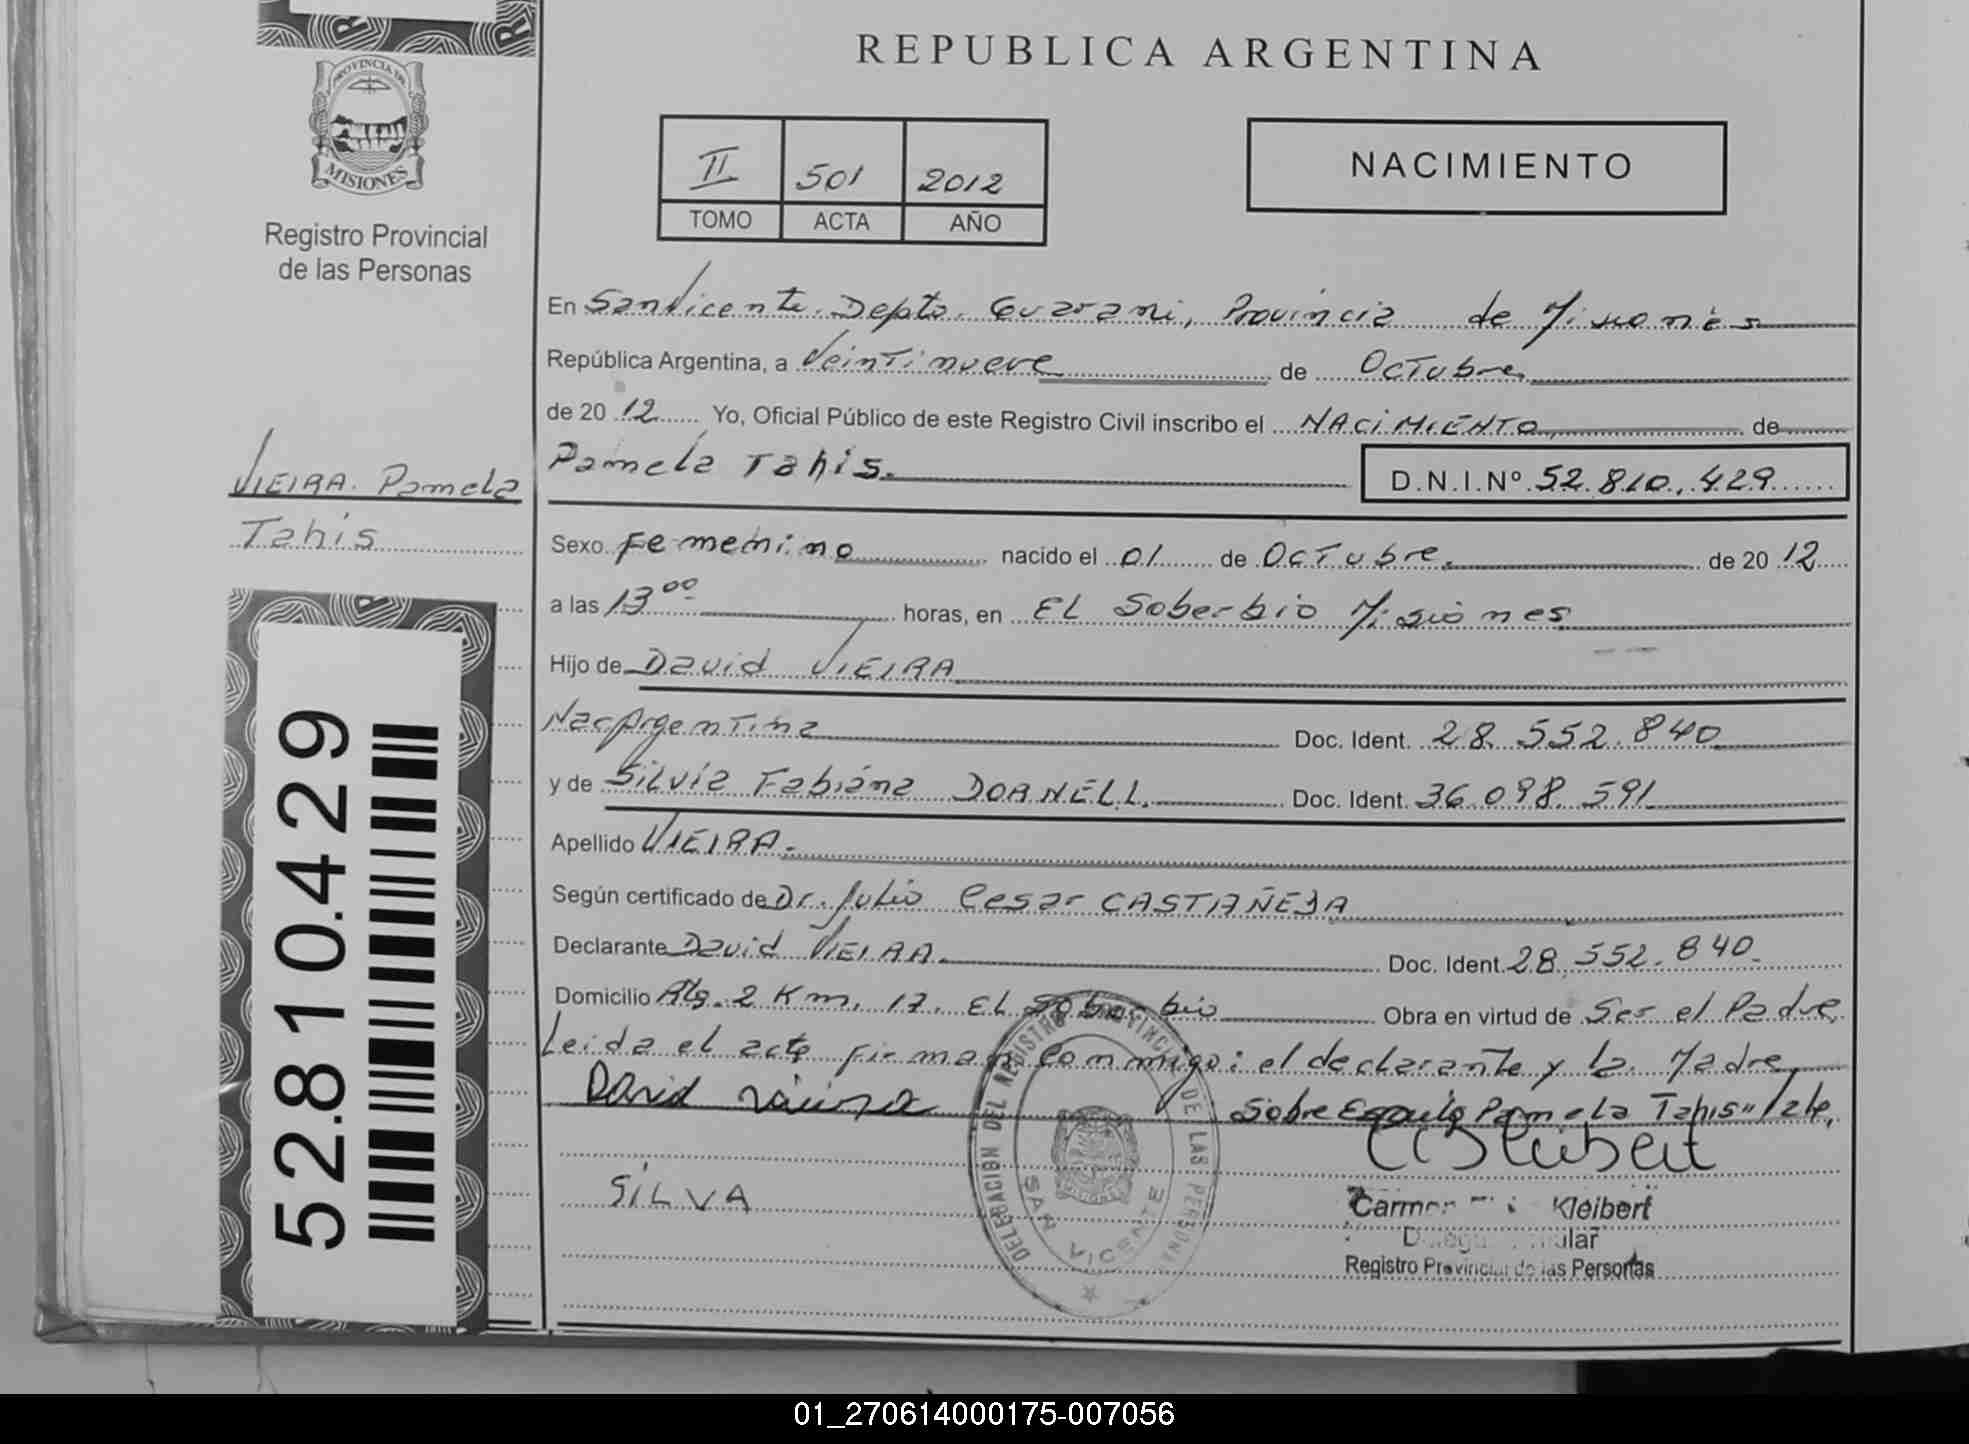 REPUBLICA ARGENTINA
PROVINCIA DE
MISIONES
Registro Provincial
de las Personas
II 501 2012
TOMO ACTA AÑO
NACIMIENTO
En San Vicente. Depto. Guarani, Provincia de Misiones
República Argentina, a Veintinueve de Octubre
de 20 12 Yo, Oficial Público de este Registro Civil inscribo el NACIMIENTO de
Pamela Tahis. D.N.I.Nº 52.810.429
VIEIRA. Pamela
Tahis
Sexo Femenino nacido el 01 de Octubre. de 20 12
a las 13 00 horas, en EL Soberbio Misiones
Hijo de David VIEIRA
Nac Argentina Doc. Ident. 28.552.840
y de Silvia Fabiana DORNELL. Doc. Ident. 36.098.591
Apellido VIEIRA.
Según certificado de Dr. Julio Cesar CASTAÑEDA
Declarante David VIEIRA. Doc. Ident. 28.552.840.
Domicilio Alg. 2 Km. 17. EL Soberbio Obra en virtud de Ser el Padre.
Leida el acta firman conmigo: el declarante y la Madre
Sobre Pamela Tahis" Vale.
David
SILVA
52.810.429
DELEGACION DEL REGISTRO PROVINCIAL DE LAS PERSONAS
SAN VICENTE
Kleibert
Registro Provincial de las Personas
01_270614000175-007056